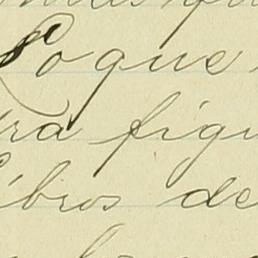 Loque
ra figu
ibros de